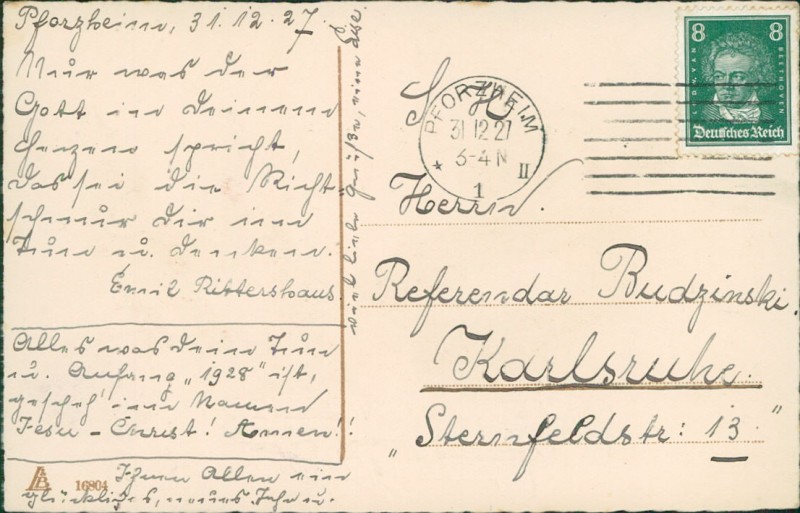 Pforzheim, 31.12.27.
Nur was der
Gott in deinem
Herzen spricht,
das sei die Richt-
schnur dir im
Tun u. Denken.
Emil Rittershaus.
Alles was dein Tun
u. Anfang „1928“ ist,
gescheh' im Namen
Jesu - Christ! Amen!!
Ihnen Allen ein
glückliches, neues Jahr u.
viele liebe Grüße,
LUDW. VAN
BEETHOVEN
8 8
Deutsches Reich
PFORZHEIM
31.12.27
3-4 N
* II
1
Herrn
Referendar Budzinski.
Karlsruhe.
„Sternfeldstr: 13.“
AB 16804